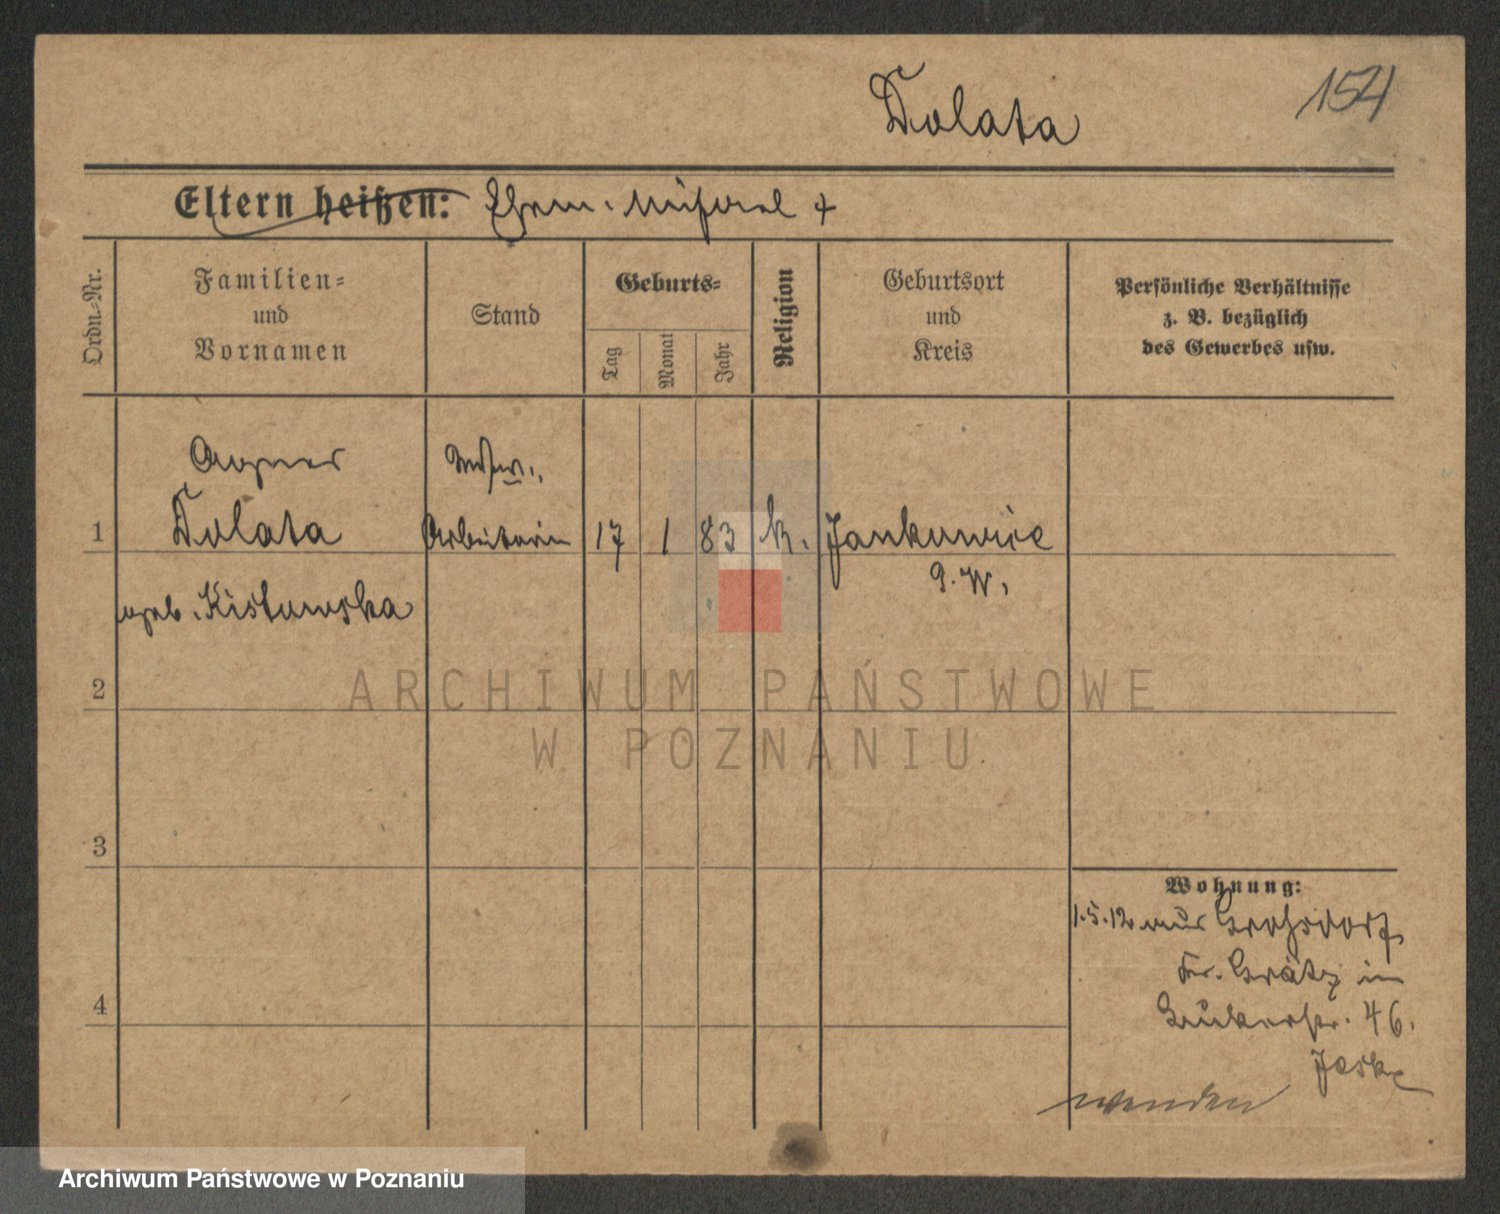 Dolata
154
Eltern heißen: Ehem. Michael +
Ordn.-Nr.
Familien-
und
Vornamen
Stand
Geburts-
Tag
Monat
Jahr
Religion
Geburtsort
und
Kreis
Persönliche Verhältnisse
z. B. bezüglich
des Gewerbes usw.
Agnes
Wwe.
1
Dolata
Arbeiterin
17
1
83
k.
Jankowice
P. W.
geb. Kistowska
2
ARCHIWUM PAŃSTWOWE
W POZNANIU
3
Wohnung:
1.5.12 aus Grohsdorf
Kr. Grätz in
4
46.
Jeske
wenden
Archiwum Państwowe w Poznaniu